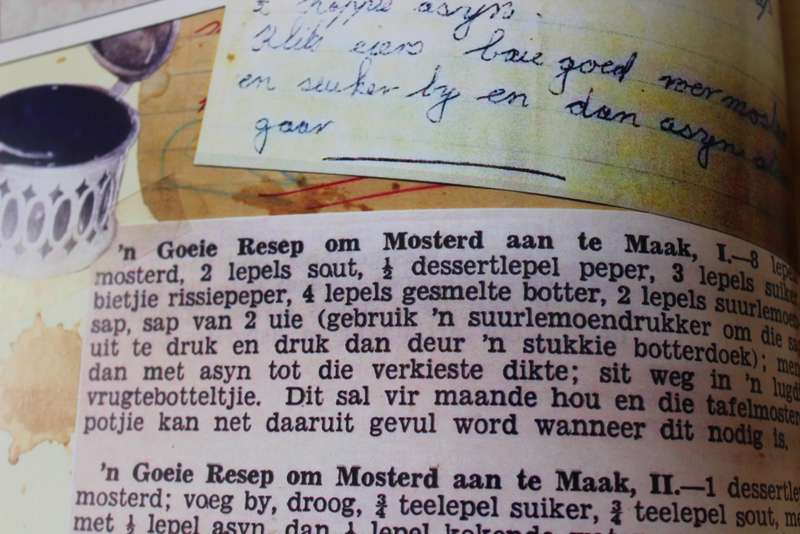 2 koppe asyn.
Klits eiers baie goed roer mosterd
en suiker by en dan asyn
gaar
'n Goeie Resep om Mosterd aan te Maak, I.—8 lepel
mosterd, 2 lepels sout, ½ dessertlepel peper, 3 lepels suike
bietjie rissiepeper, 4 lepels gesmelte botter, 2 lepels suurlemoe
sap, sap van 2 uie (gebruik 'n suurlemoendrukker om die sa
uit te druk en druk dan deur 'n stukkie botterdoek); men
dan met asyn tot die verkieste dikte; sit weg in 'n lugd
vrugtebotteltjie. Dit sal vir maande hou en die tafelmoster
potjie kan net daaruit gevul word wanneer dit nodig is.
'n Goeie Resep om Mosterd aan te Maak, II.—1 dessertle
mosterd; voeg by, droog, ¾ teelepel suiker, ¾ teelepel sout, me
met ½ lepel asyn, dan lepel kokende